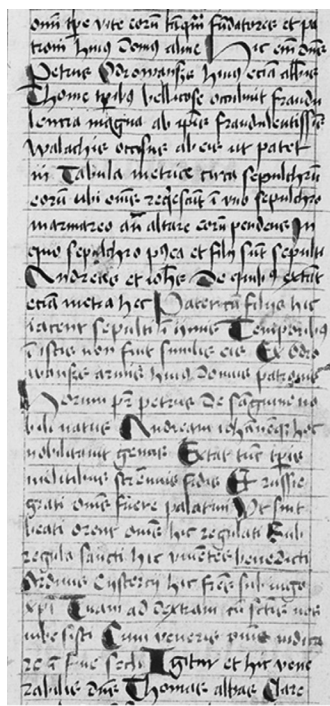 omni tpe vite eorum tamqm fundatores et pa
troni huius domus alme Hic eni dnus
Petrus Odrowansz huius eciam abbatis
Thome tpibus bellicose occubuit fraudu
lencia magna ab ipsis fraudulentissis
walachis occisus ab eis ut patet
in Tabula metrice circa sepulchrum
eorum ubi omnes reqescunt i uno sepulchro
marmoreo an altare eorum pendens In
quo sepulchro postea et filii sunt sepulti
Andreas et iohes De quibus extant
eciam metra hec Pater cum filiis hic
iacent sepulti i unum Temporibus
i istis non fuit similis eis Ex odro
wansz armis huius domus patronus
Horum pr petrus de sanguine no
bili natus Andream iohanneque hec
nobilitavit genus Extat tunc tpis
militibus strennuis fidis Et russie
grati omnes fuere palatini Ut sint
beati orent omes hic regulati Sub
regula sancti hic viventes benedicti
Ordinis Cystercii hic fres sub iugo
xpi Tuam ad dextram cu sctis nos
iube sisti Cum veneris pius iudica
re i fine secli Igitur et hic vene
rabilis dnus Thomas abbas Clare